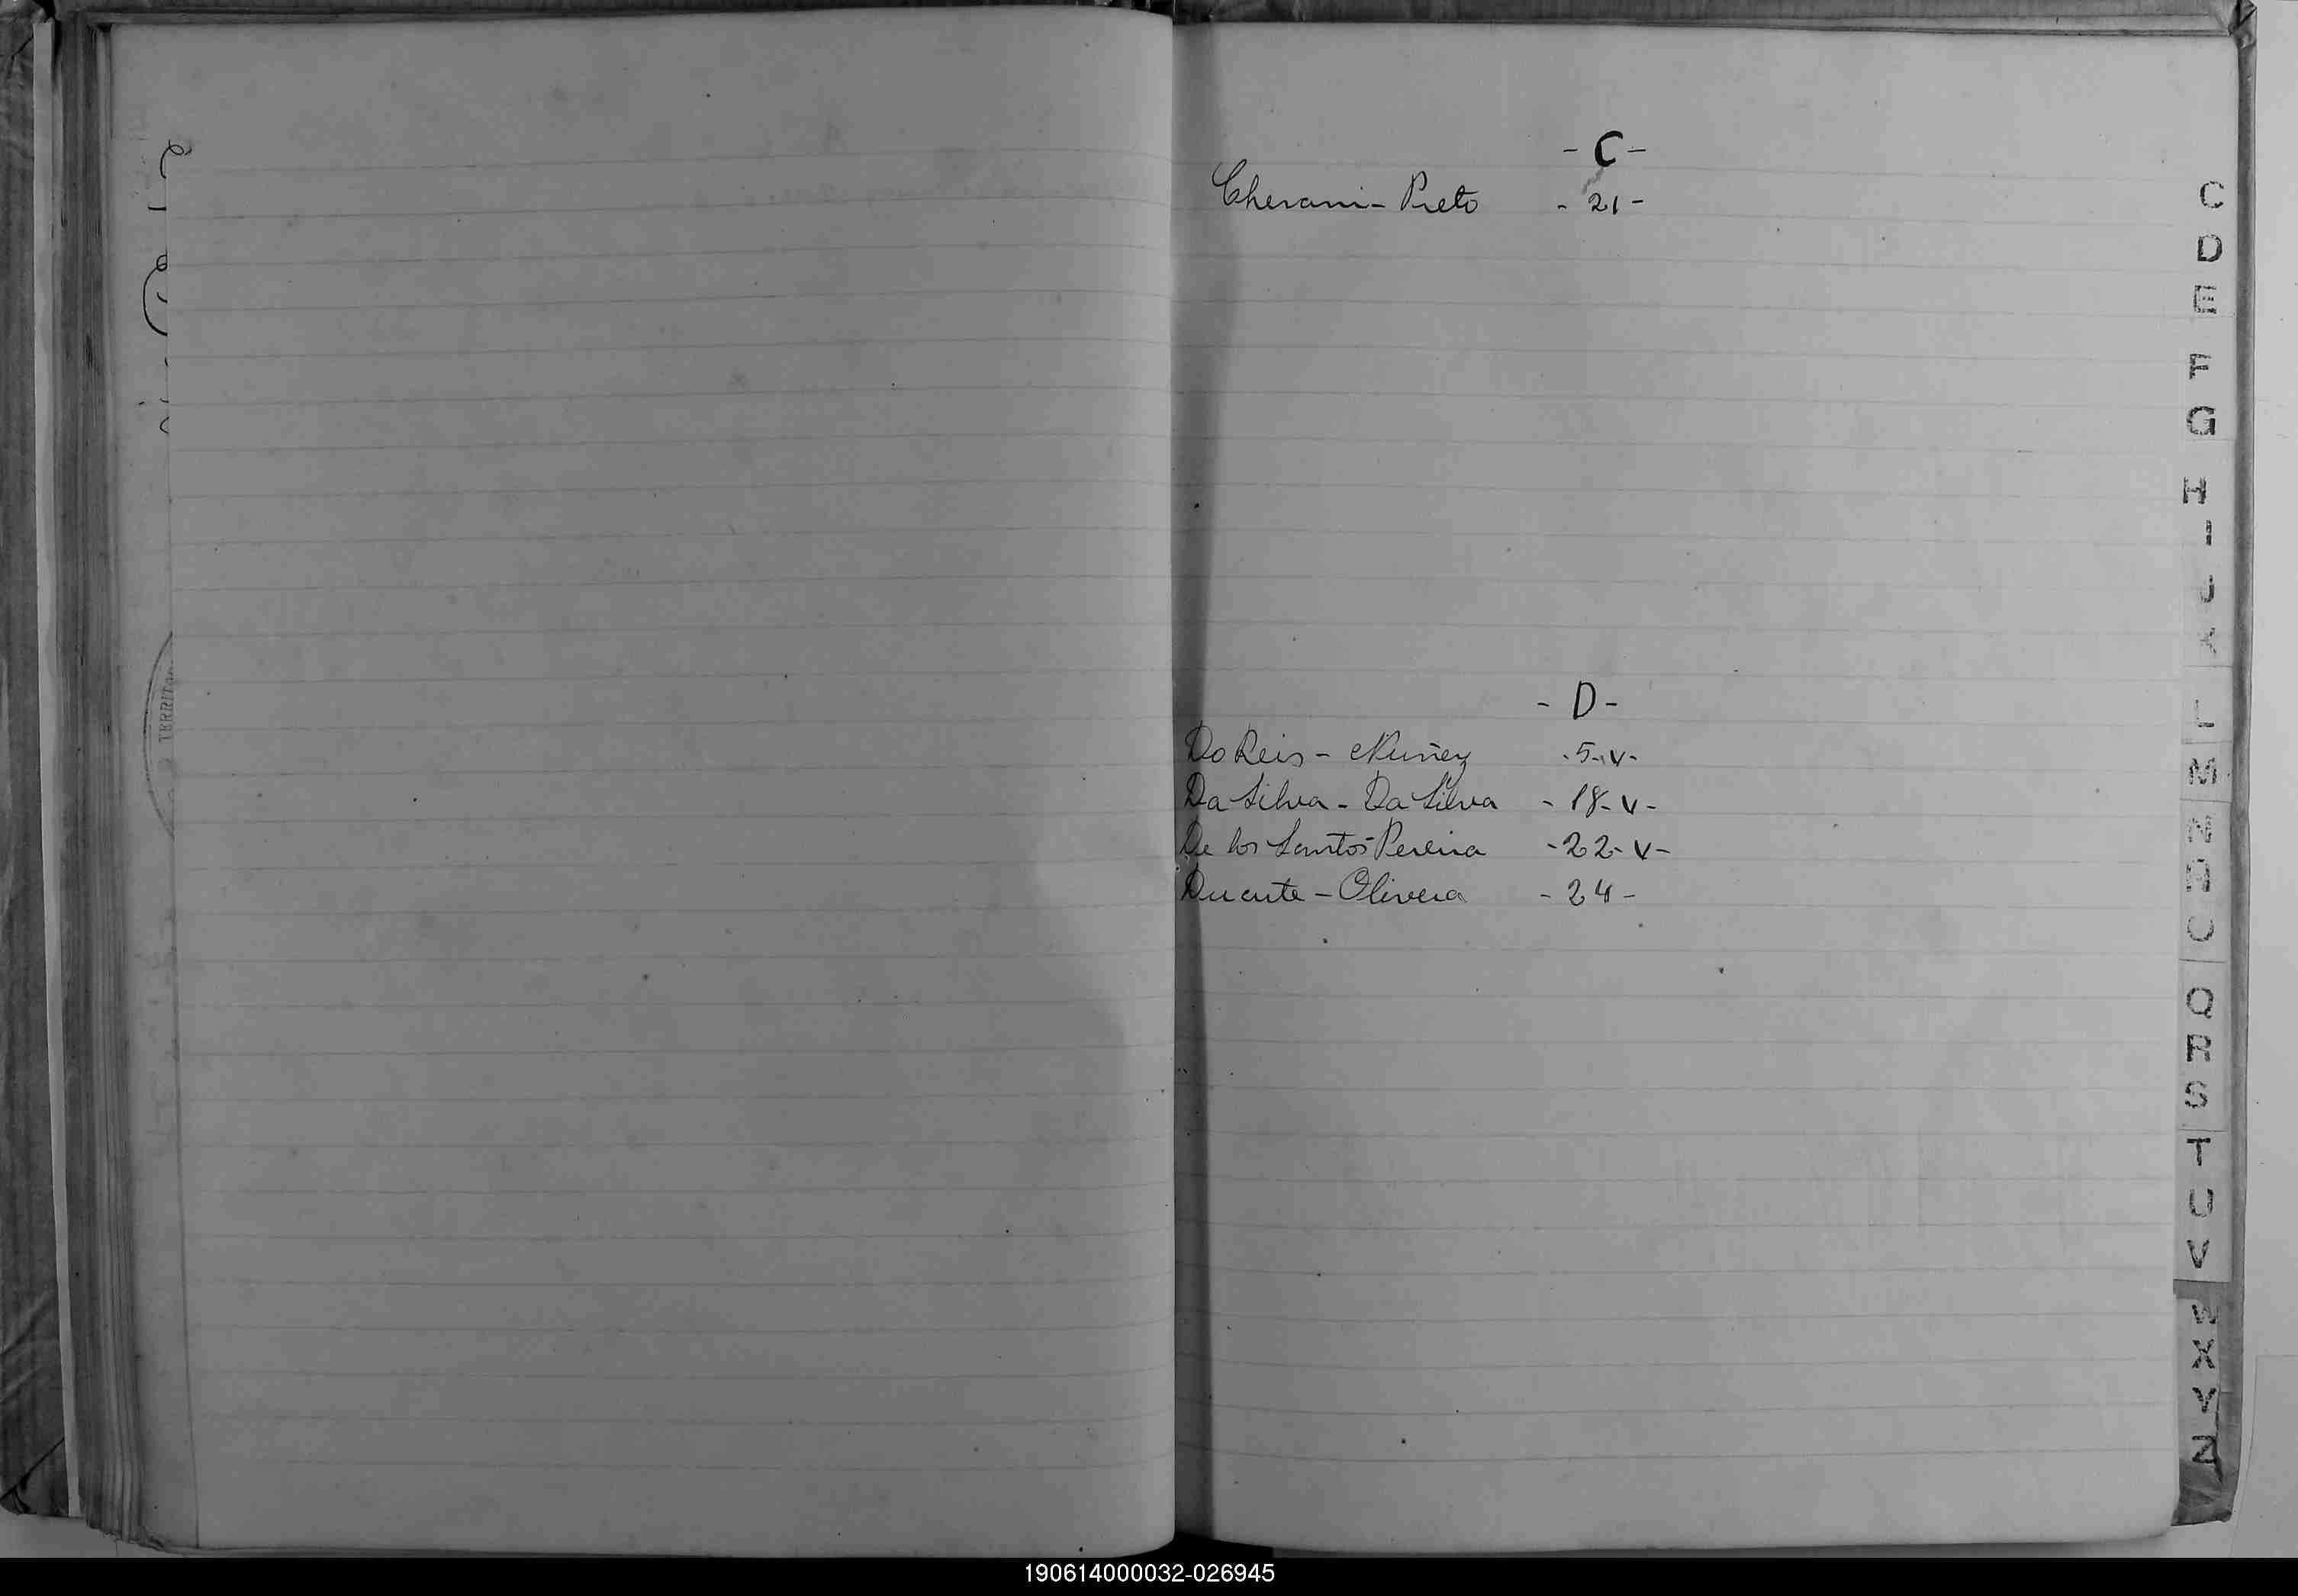 - C -
Cherami - Preto - 21 -
- D -
Do Reis - Nuñez - 5 - v -
Da Silva - Da Silva - 18 - v -
De los Santos Pereira - 22 - v -
Duarte - Olivera - 24 -
C
D
E
F
G
H
I
J
K
L
M
N
Ñ
O
Q
R
S
T
U
V
W
X
Y
Z
190614000032-026945